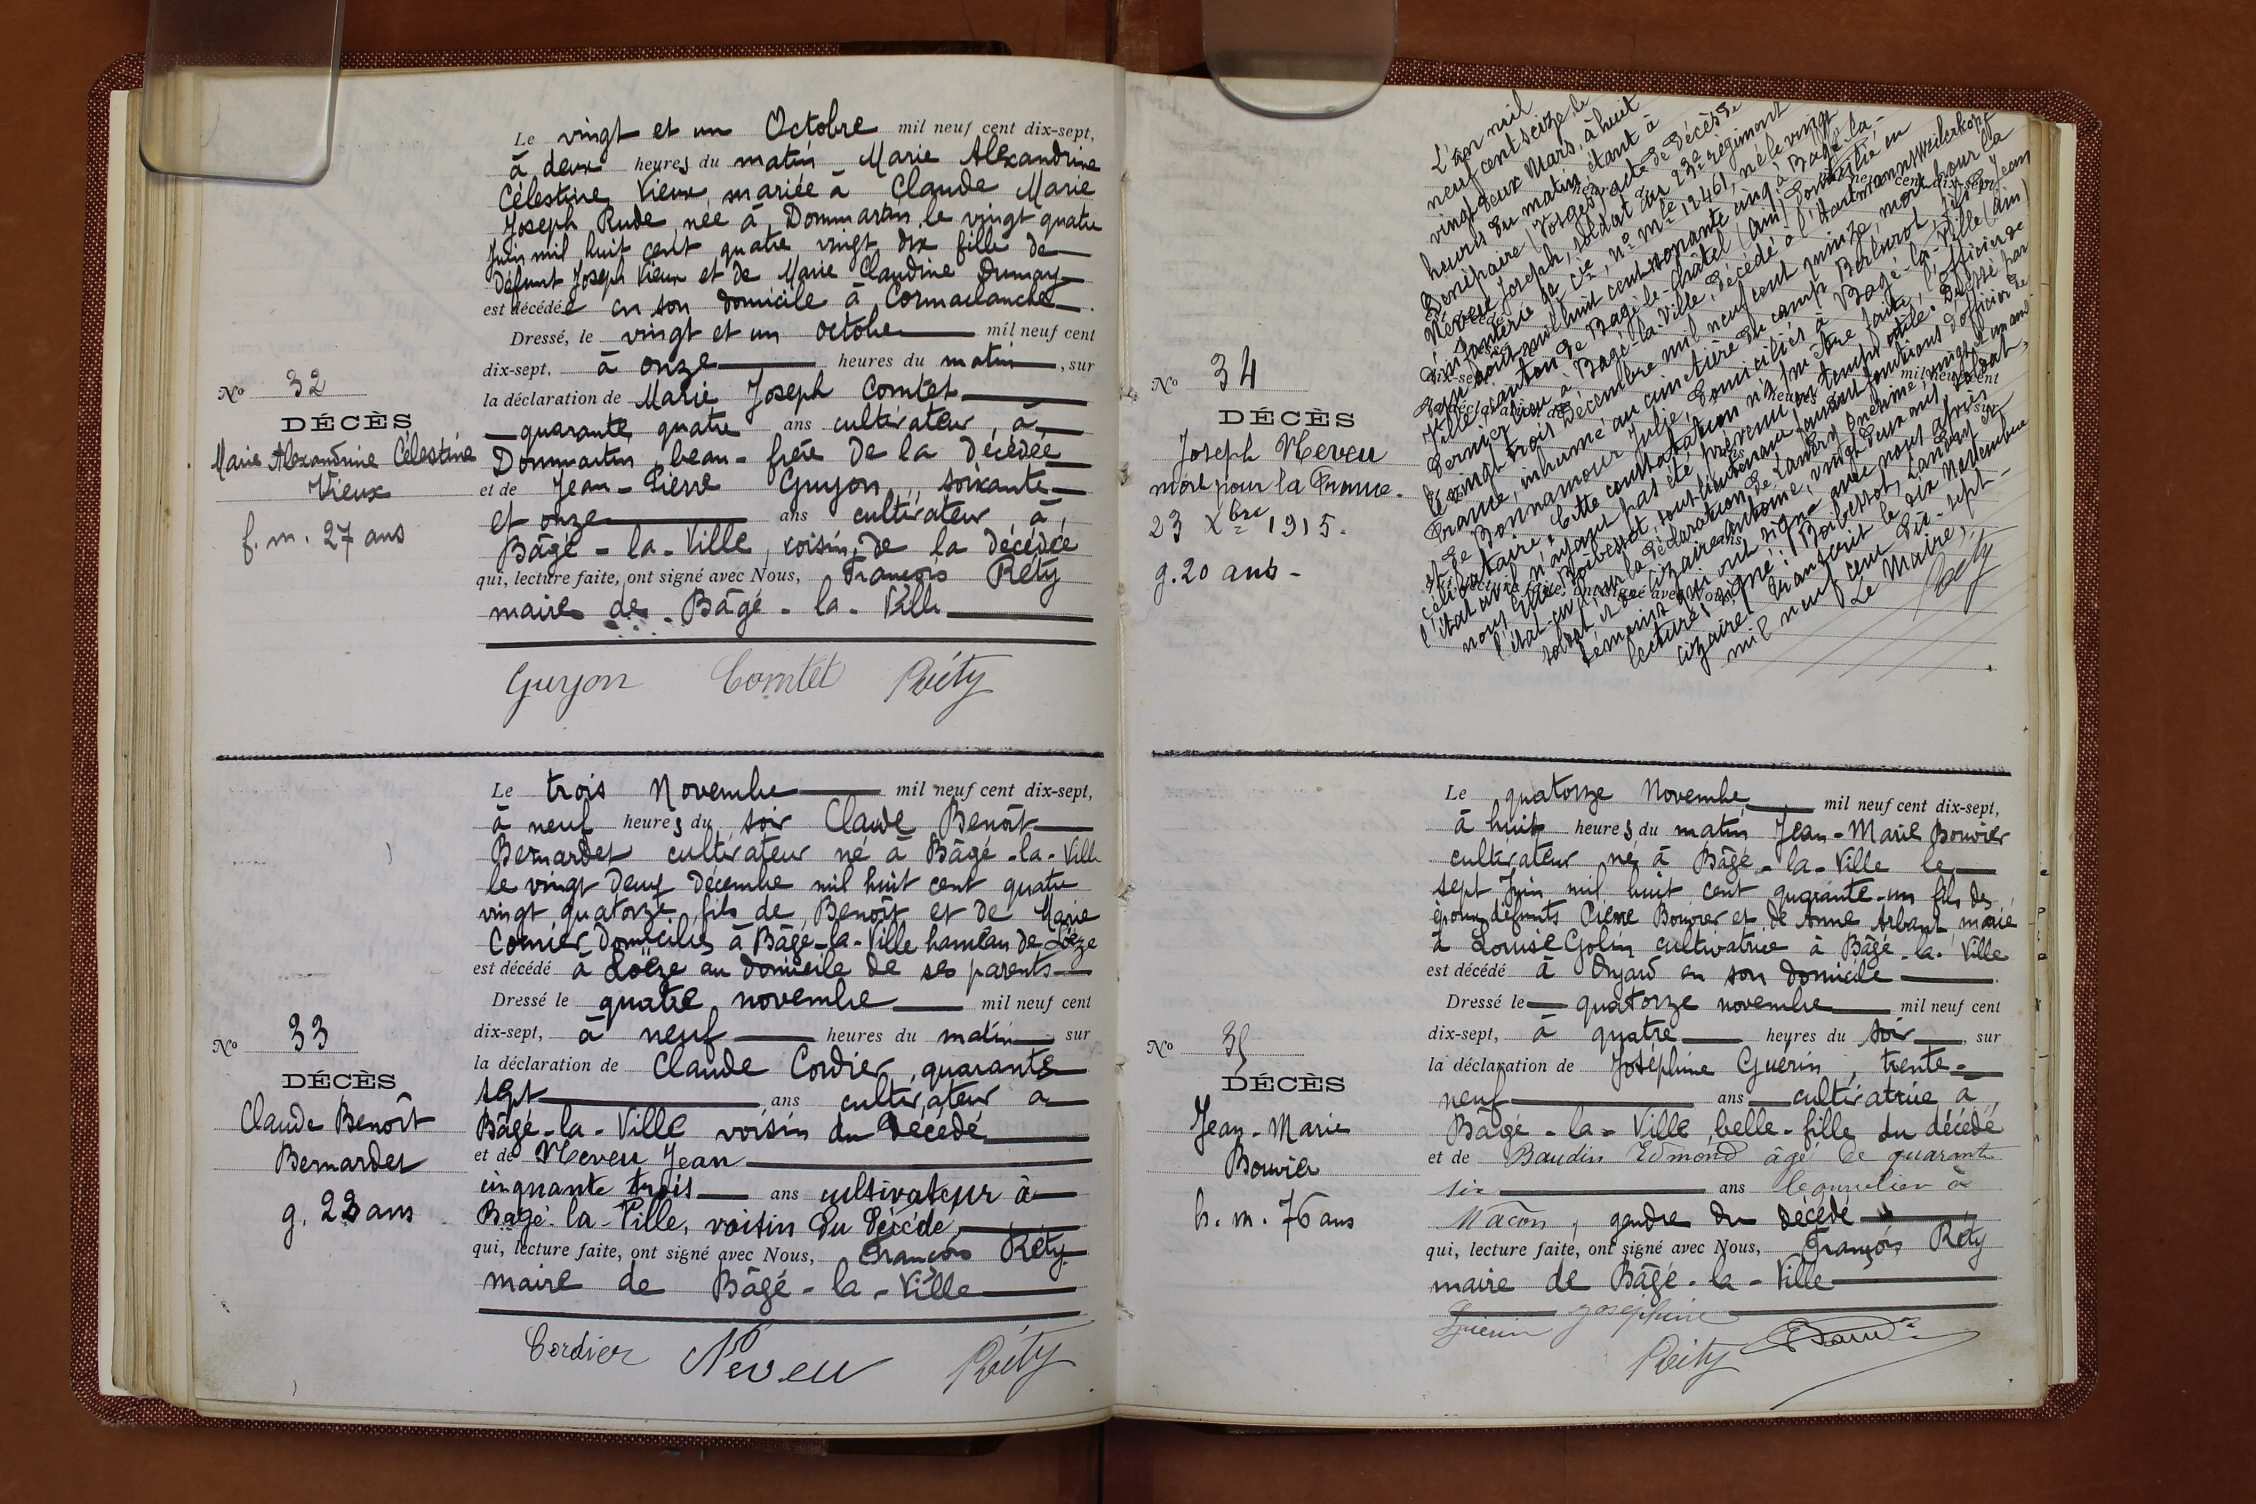 Le vingt et un Octobre mil neuf cent dix-sept,
à deux heures du matin Marie Alexandrine
Célestine Vieux, mariée à Claude Marie
Joseph Rude née à Dommartin le vingt quatre
Juin mil huit cent quatre vingt dix fille de
défunt Joseph Vieux et de Marie Claudine Dumay
est décédée en son domicile à Cormaclanche
Dressé, le vingt et un octobre mil neuf cent
dix-sept, à onze heures du matin, sur
la déclaration de Marie Joseph Comtet
quarante quatre ans cultivateur, à
Dommartin beau-frère de la décédée
et de Jean-Pierre Guyon, soixante
et onze ans cultivateur à,
Bâgé-la-Ville, voisin de la décédée
qui, lecture faite, ont signé avec Nous, François Réty
maire de Bâgé-la-Ville
Guyon Comtet Réty
No 32
DÉCÈS
Marie Alexandrine Célestine
Vieux
f. m. 27 ans
Le trois Novembre mil neuf cent dix-sept,
à neuf heures du soir Claude Benoît
Bernardet cultivateur né à Bâgé-la-Ville
le vingt deux décembre mil huit cent quatre
vingt quatorze, fils de Benoît et de Marie
domiciliés à Bâgé-la-Ville hameau de Loëze
est décédé à Loëze au domicile de ses parents
Dressé le quatre novembre mil neuf cent
dix-sept, à neuf heures du matin sur
la déclaration de Claude Cordier, quarante
sept ans cultivateur à
Bâgé-la-Ville voisin du décédé
et de Neveu Jean
cinquante trois ans cultivateur à
Bâgé-la-Ville, voisin du décédé,
qui, lecture faite, ont signé avec Nous, François Réty
maire de Bâgé-la-Ville
Cordier Neveu Réty
No 33
DÉCÈS
Claude Benoît
Bernardet
g. 23 ans
L'an mil
neuf cent seize le
vingt deux Mars, à huit
heures du matin étant à
Benifaire (Vosges) acte de décès de
Neveu Joseph, soldat au 23e régiment
d'infanterie, Cie, No Mle 12461, né le vingt
août mil huit cent à Bâgé-la-
Ville, canton de Bâgé-le-Châtel (Ain) domicilié en
dernier lieu à Bâgé-la-Ville, décédé à l'Hartmannswillerkopf
le vingt trois décembre mil neuf cent quinze, mort pour la
France, inhumé au cimetière du camp fils de Jean
et de Bonnamour Julie, domiciliés à Bâgé-la-Ville (Ain)
célibataire. Cette constatation n'a pu être faite, l'officier de
l'état civil n'ayant pas été prévenu en temps utile. Dressé par
nous Boibessot, sous-lieutenant faisant fonctions d'officier de
l'état civil sur la déclaration de Landry vingt un ans
soldat et de Cizaire Antoine, vingt deux ans, soldat,
témoins qui ont signé avec nous après
lecture. signé: Boibessot, Landry et
Cizaire. Transcrit le dix Novembre
mil neuf cent dix-sept-
Le Maire,
Réty
No 34
DÉCÈS
Joseph Neveu
mort pour la France.
23 Xbre 1915.
g. 20 ans-
Le quatorze Novembre mil neuf cent dix-sept,
à huit heures du matin Jean-Marie Bouvier
cultivateur né à Bâgé-la-Ville le
sept Juin mil huit cent quarante-un fils des
époux défunts Pierre Bouvier et de Anne Arbant, marié
à Louise Golin cultivatrice à Bâgé-la-Ville
est décédé à en son domicile
Dressé le quatorze novembre mil neuf cent
dix-sept, à quatre heures du soir, sur
la déclaration de Joséphine Guérin, trente-
neuf ans cultivatrice à,
Bâgé-la-Ville, belle-fille du décédé
et de Baudin Edmond âgé de quarante
six ans à
Macon, gendre du décédé
qui, lecture faite, ont signé avec Nous, François Réty
maire de Bâgé-la-Ville
Guerin Josephine
Réty
No 35
DÉCÈS
Jean-Marie
Bouvier
h. m. 76 ans